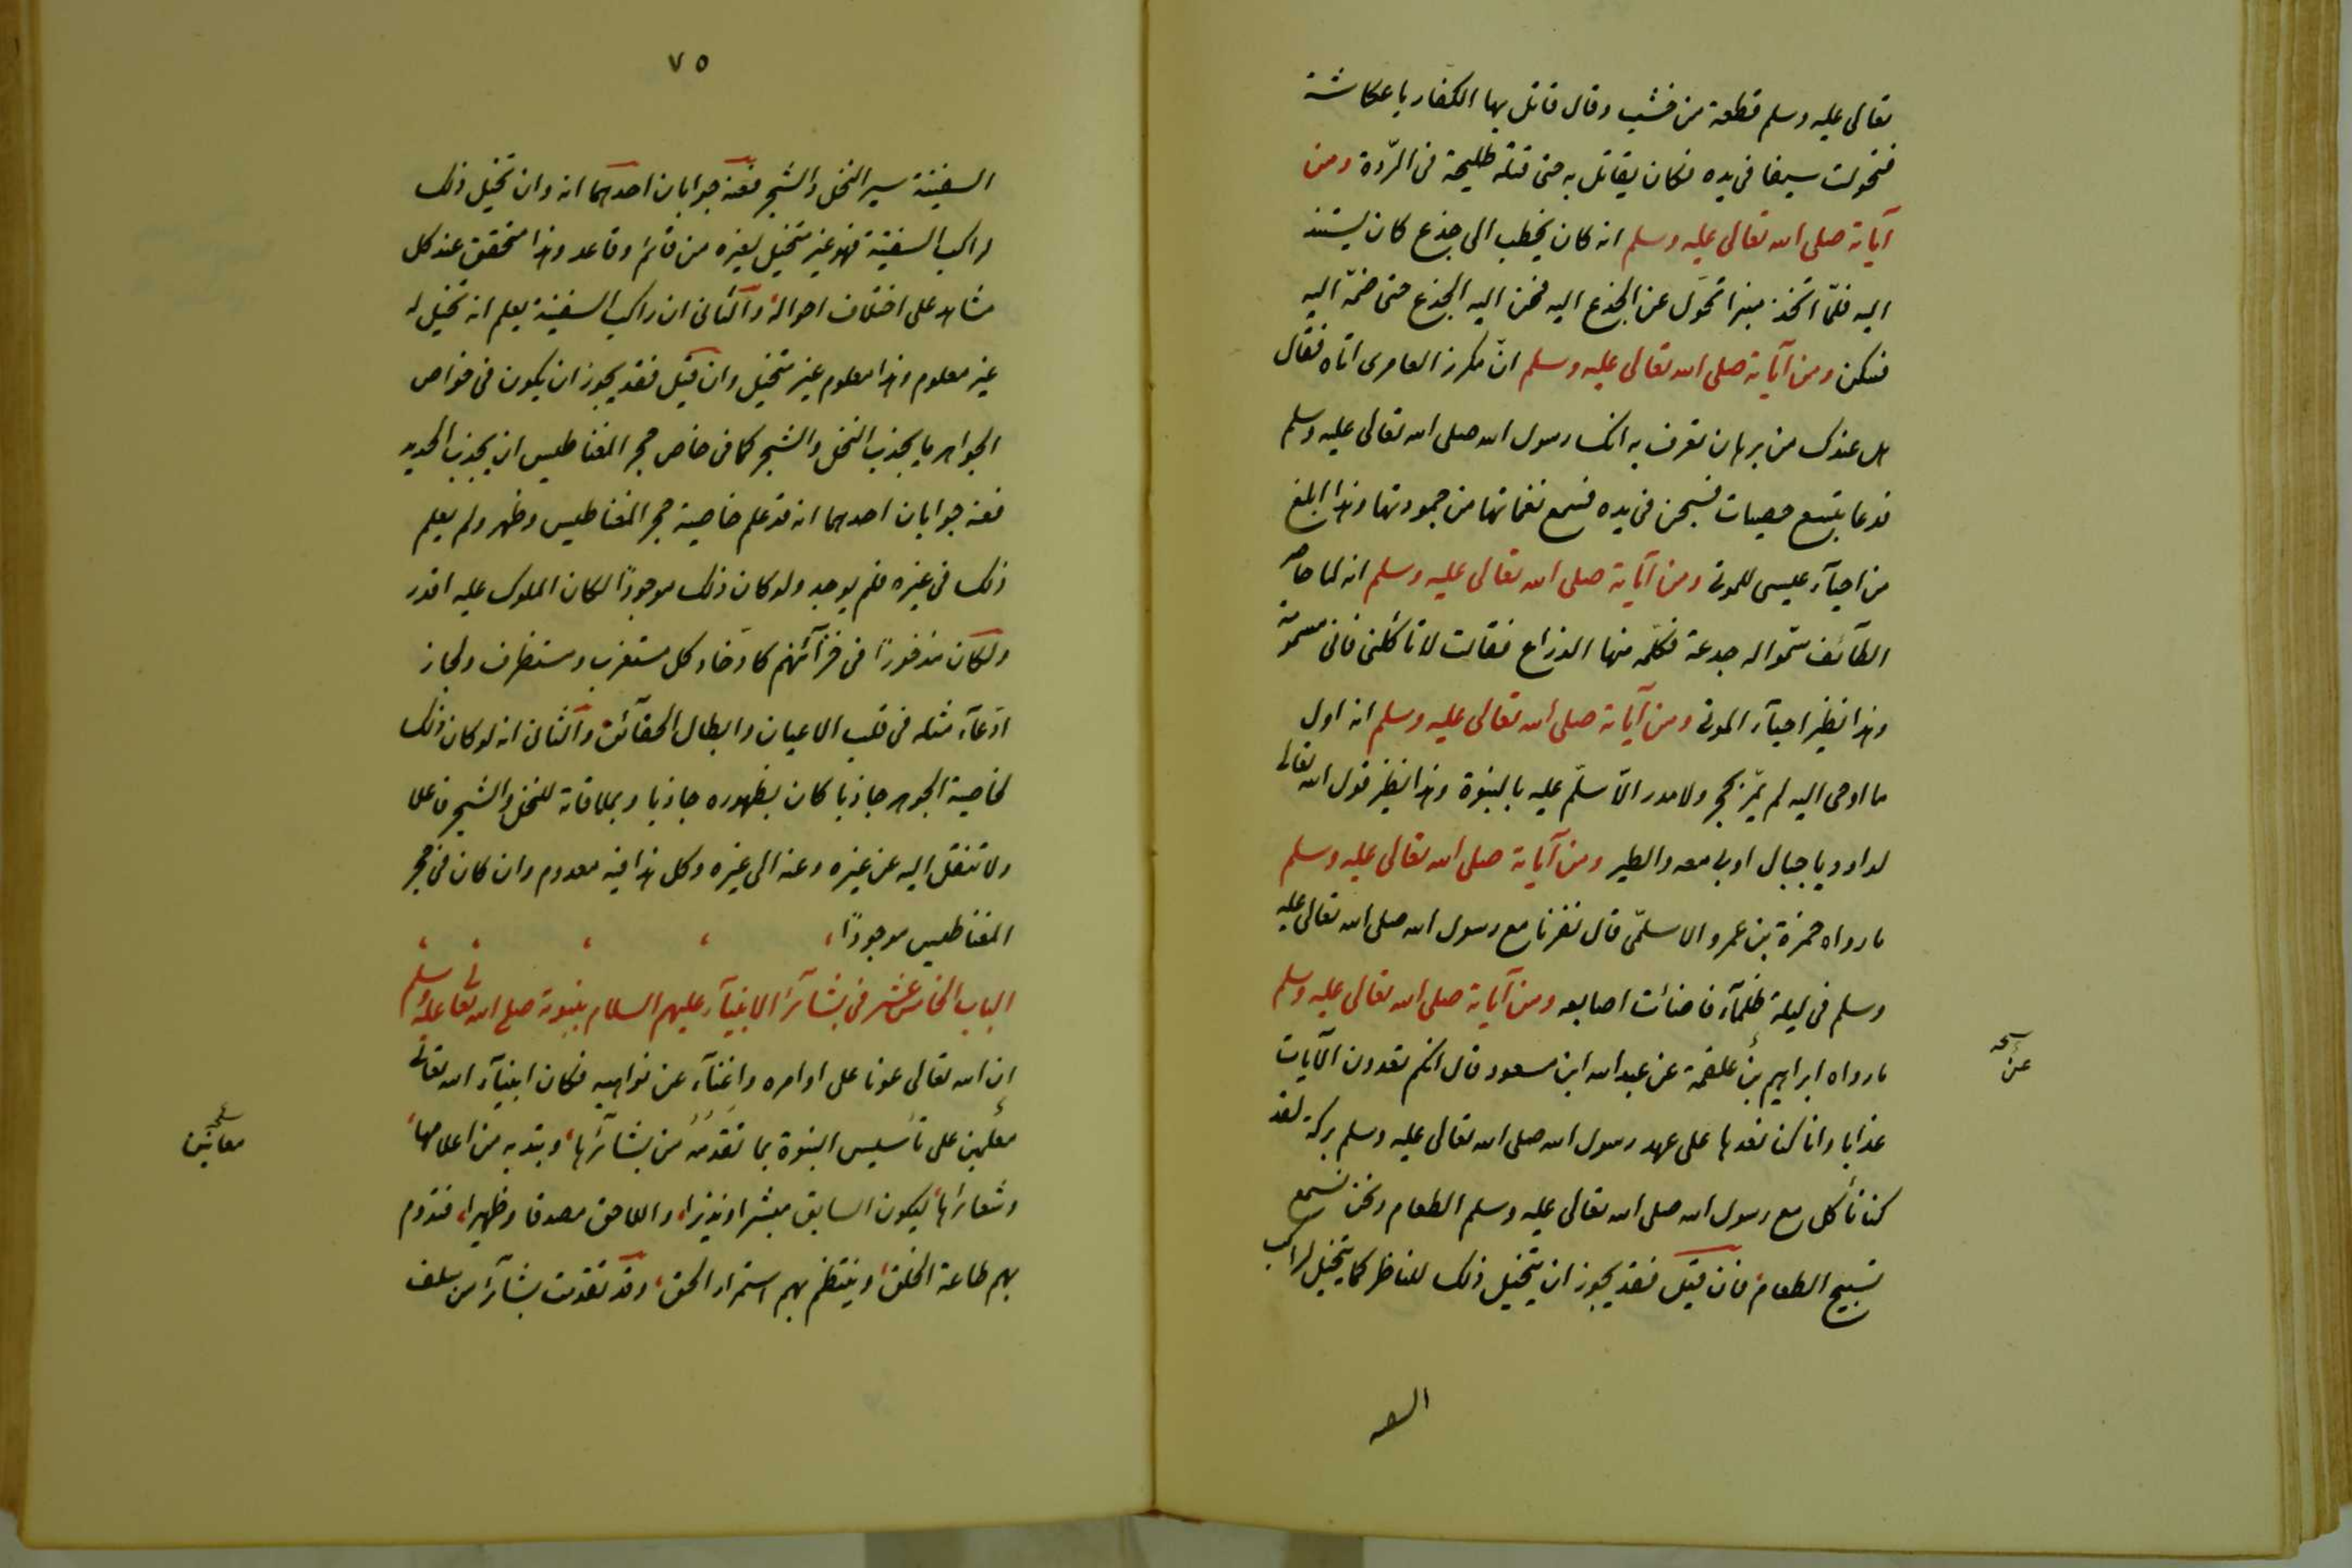 تعالى عليه وسلم قطعة من خشب وقال قاتل بها الكفار يا عكاشة
فتحولت سيفا فى يده فكان يقاتل به حتى قتله طليحة فى الردّة ومن
آياته صلى الله تعالى عليه وسلم انه كان يخطب الى جذع كان يستند
اليه فلمّا اتخذ منبرا تحوّل عن الجذع اليه فحن اليه الجذع حتى ضمّه اليه
فسكن ومن آياته صلى الله تعالى عليه وسلم انّ مكرز العامرى اتاه فقال
هل عندك من برهان نعرف به انك رسول الله صلى الله تعالى عليه وسلم
فدعا بتسع حصيات فسبحن فى يده فسمع نغماتها من جمودتها وهذا ابلغ
من احيآء عيسى للموتى ومن آياته صلى الله تعالى عليه وسلم انه لما حاصر
الطآئف سمّوا له جدعة فكلّمه منها الذراع فقالت لا تأكلنى فانى مسمومة
وهذا نظير احيآء الموتى ومن آياته صلى الله تعالى عليه وسلم انه اول
ما اوحى اليه لم يمّر بحجر ولا مدر الاّ سلّم عليه بالنبوة وهذا نظير قول الله تعالى
لداود يا جبال اوبى معه والطير ومن آياته صلى الله تعالى عليه وسلم
ما رواه حمزة بن عمرو الاسلمّى قال نفرنا مع رسول الله صلى الله تعالى عليه
وسلم فى ليلة ظلمآء فاضائت اصابعه ومن آياته صلى الله تعالى عليه وسلم
ما رواه ابراهيم بن علقمة عن عبد الله ابن مسعود قال انكم تعدون الآيات
عن
عذابا وانا كنا نعدها على عهد رسول الله صلى الله تعالى عليه وسلم بركة لقد
كنا نأكل مع رسول الله صلى الله تعالى عليه وسلم الطعام ونحن نسمع
تسبيح الطعام، فان قيل فقد يجوز ان يتخيل ذلك للناظر كما يتخيل لراكب
٧٥
السفينة سير النخل والشجر فعنه جوابان احدهما انه وان تخيل ذلك
راكب السفينة فهو غير متخيل لغيره من قائم وقاعد وهذا متحقق عند كل
مشاهد على اختلاف احواله، والثانى ان راكب السفينة يعلم انه تخيل له
غير معلوم وهذا معلوم غير متخيل وان قيل فقد يجوز ان يكون فى خواص
الجواهر ما يجذب النخل والشجر كما فى خاص حجر المغناطيس ان يجذب الحديد
فعنه جوابان احدهما انه قد علم خاصية حجر المغناطيس وظهر ولم يعلم
ذلك فى غيره فلم يوجد ولو كان ذلك موجودًا لكان الملوك عليه اقدر
ولكان مذخورًا فى خزآئنهم كاذخار كل مستغرب ومستظرف ولجاز
ادّعآء مثله فى قلب الاعيان وابطال الحقآئق والثانى انه لو كان ذلك
لخاصية الجوهر جاذبا كان بظهوره جاذبا وبملاقاته للنخل والشجر فاعلا
ولا تنقل اليه عن غيره وعنه الى غيره وكل هذا فيه معدوم وان كان فى حجر
المغناطيس موجودًا،
الباب الخامس عشر فى بشآئر الانبيآء عليهم السلام بنبوته صلى الله تعالى عليه وسلم
ان الله تعالى عونا على اوامره واغنآء عن نواهيه فكان انبيآء الله تعالى
معلمين على تأسيس النبوة بما تقدمه من بشآئرها، وبتديه من اعلامها،
معانين
وشعائرها، ليكون السابق مبشرا ونذيرا، واللاحق مصدقا وظهيرا، فتدوم
بهم طاعة الخلق، وينتظم بهم استمرار الحق، وقد تقدمت بشآئر من سلف